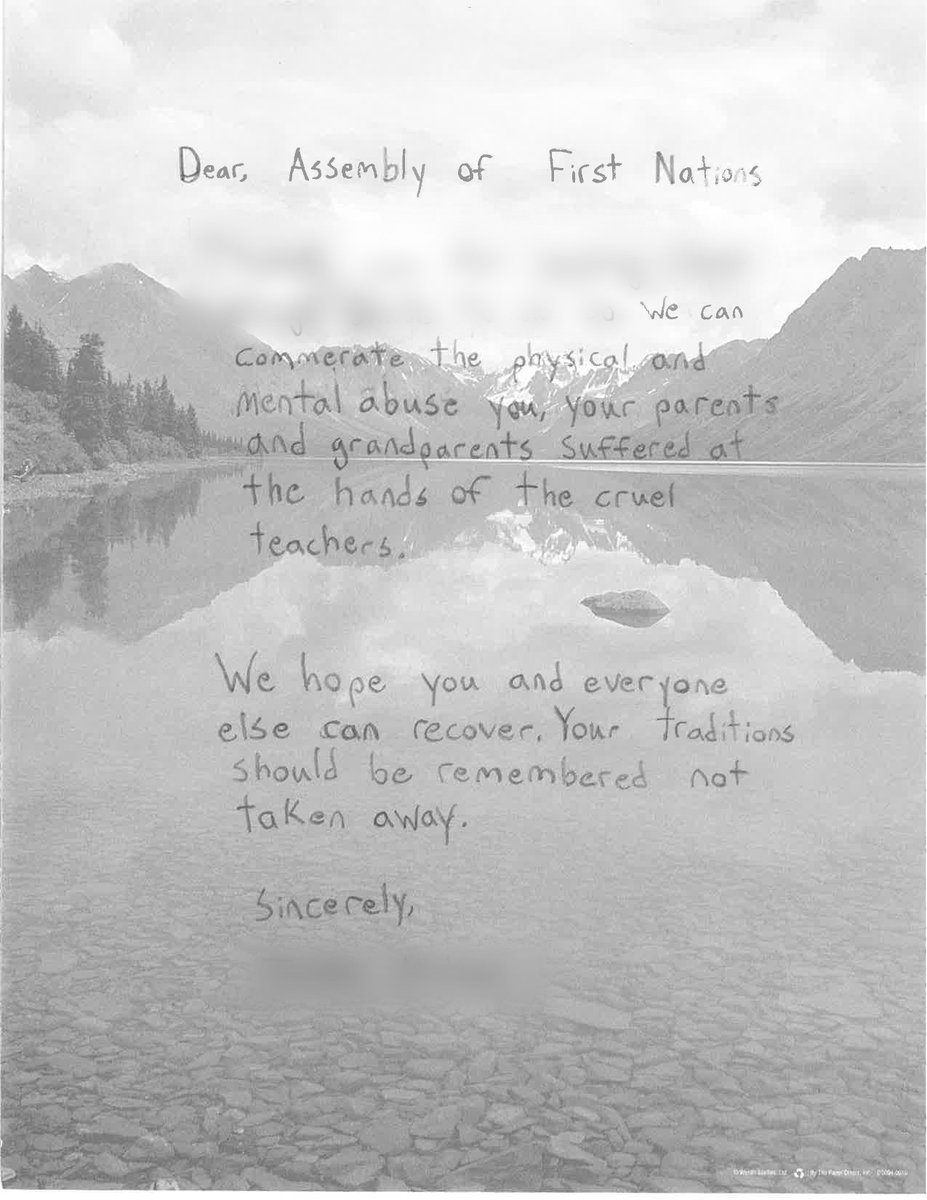 Dear, Assembly of First Nations
We can
commerate the physical and
mental abuse you, your parents
and grandparents suffered at
the hands of the cruel
teachers.
We hope you and everyone
else can recover. Your traditions
should be remembered not
taken away.
Sincerely,